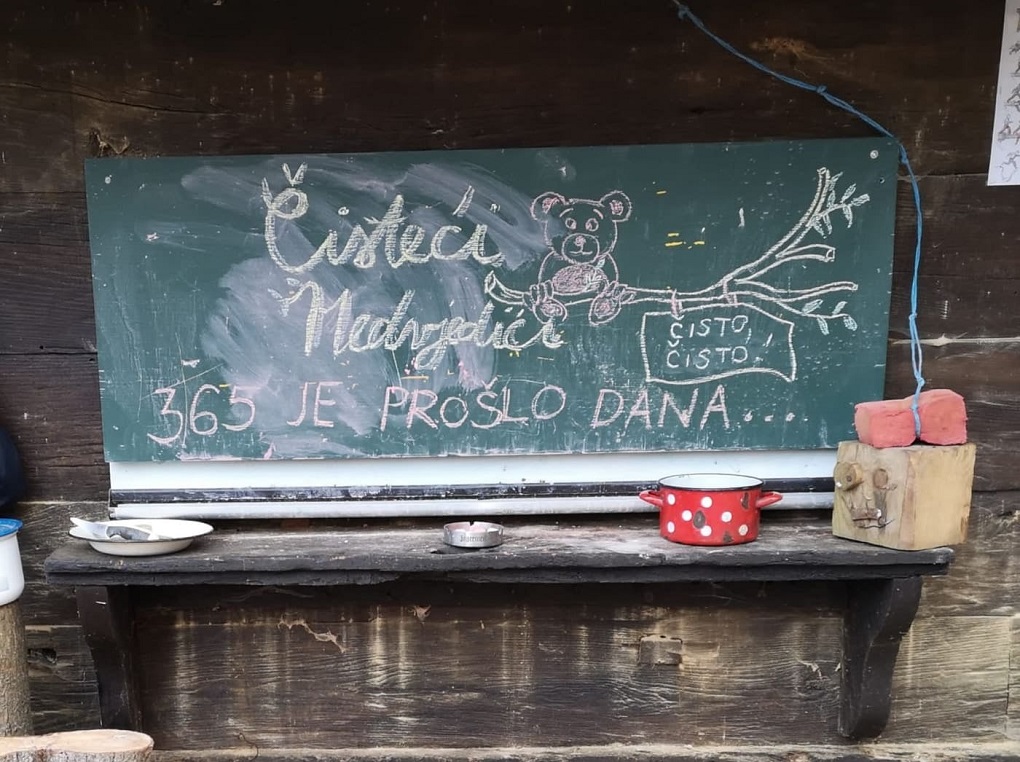 Čisteći
Medvjedići
ČISTO,
ČISTO!
365 JE PROŠLO DANA...